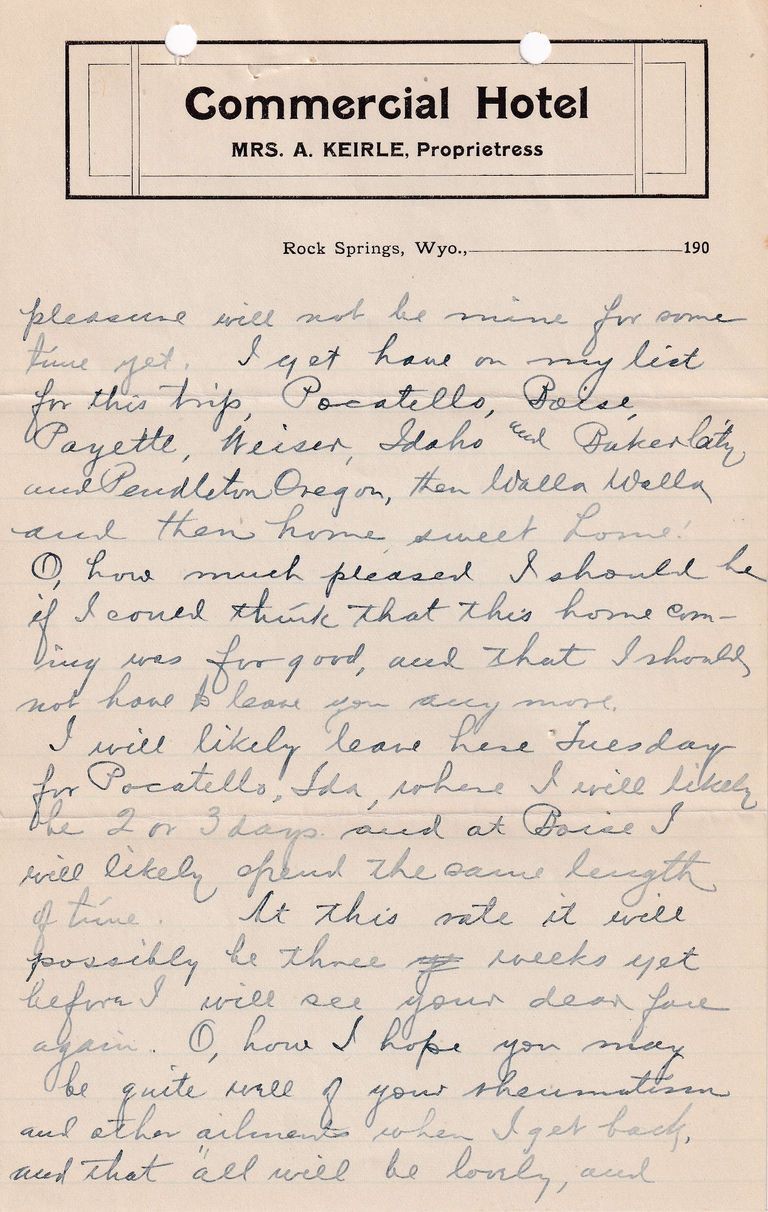 Commercial Hotel
MRS. A. KEIRLE, Proprietress
Rock Springs, Wyo., 190
pleasure will not be mine for some
time yet. I yet have on my list
for this trip, Pocatello, Boise,
Payette, Weiser, Idaho and Baker City
and Pendleton Oregon, then Walla Walla
and then home sweet home!
O, how much pleased I should be
if I could think that this home com-
ing was for good, and that I should
not have to leave you any more.
I will likely leave here Tuesday
for Pocatello, Ida, where I will likely
be 2 or 3 days. and at Boise I
will likely spend the same length
of time. At this rate it will
possibly be three weeks yet
before I will see your dear face
again. O, how I hope you may
be quite well of your rheumatism
and other ailments when I get back,
and that "all will be lovely, and